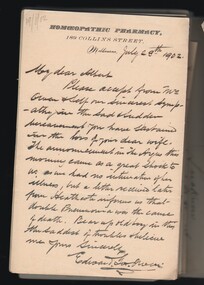 HOMŒOPATHIC PHARMACY,
189 COLLINS STREET,
July 28th 1902
My dear Albert
Please accept from Mrs
Owen & self our sincerest sympathy
in the sad & sudden
bereavement you have sustained
in the loss of your dear wife.
The announcement in the Argus this
morning came as a great shock to
us, as we had no intimation of her
illness, but a letter received later
from Heathcote informs us that
double Pneumonia was the cause
of death. Bear up old boy in this
the saddest of troubles & believe
me Yours Sincerely
Edward